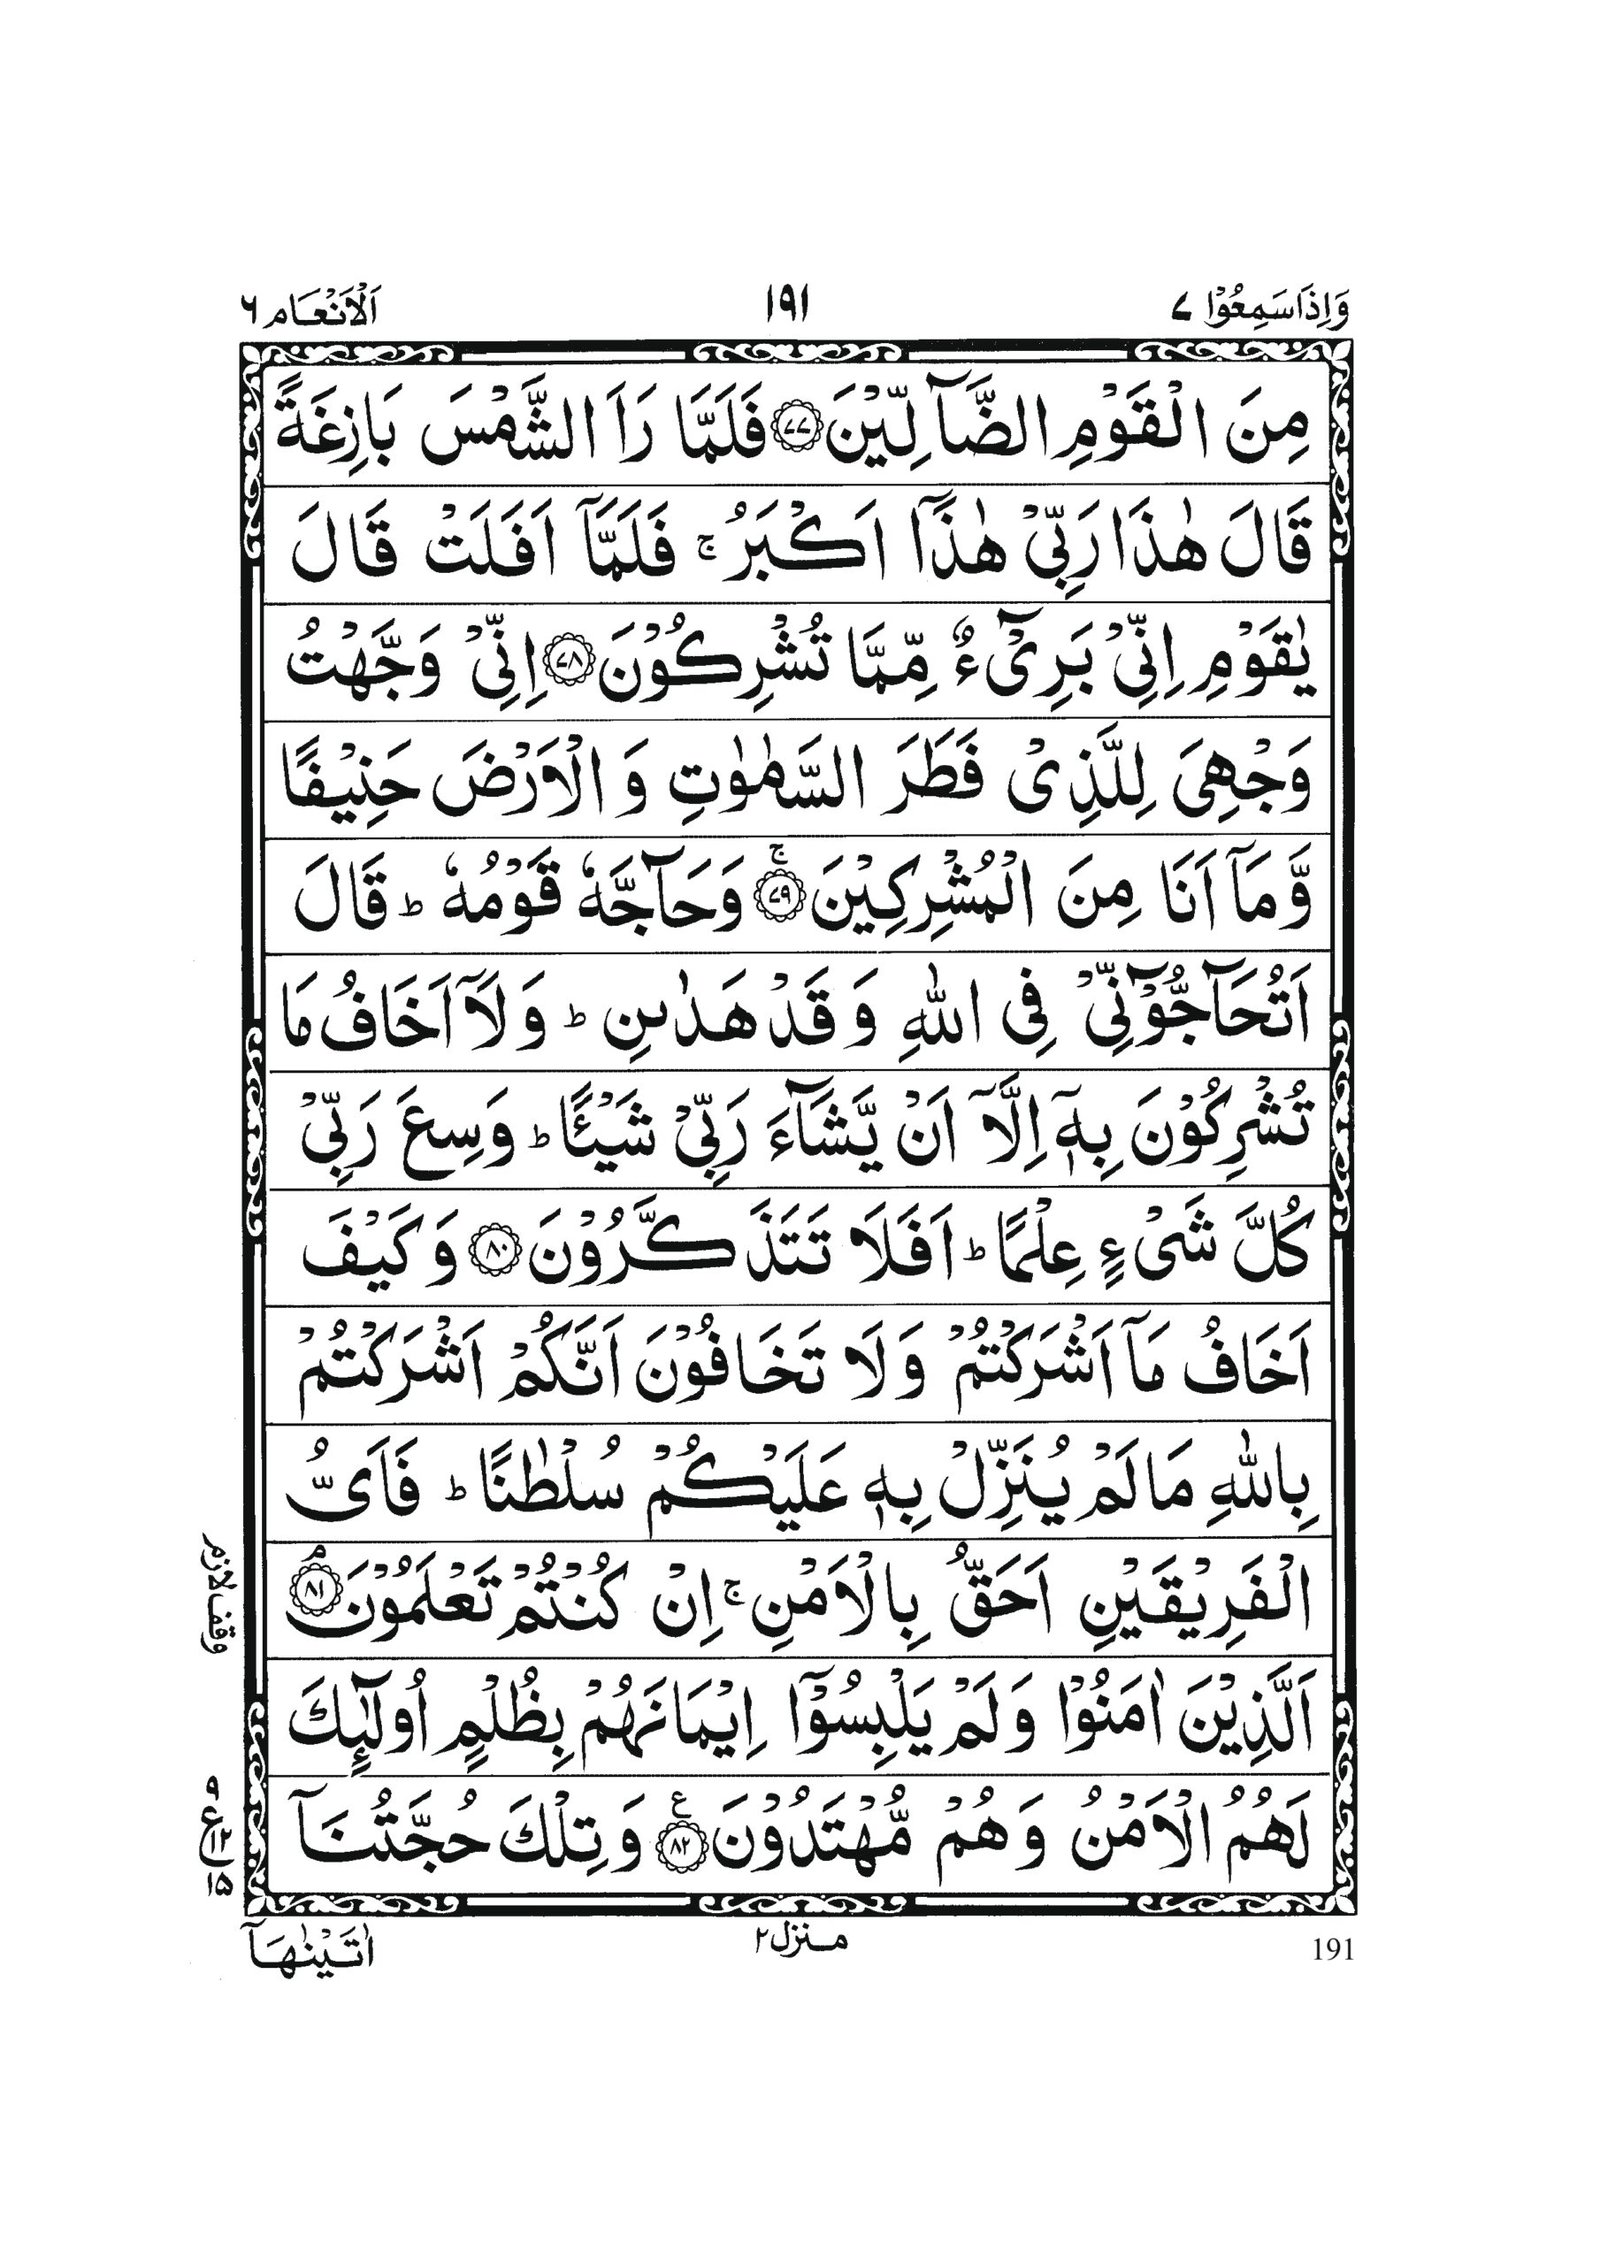 وَاِذَا سَمِعُوْا ٧
١٩١
اَلْاَنْعَام ٦
مِنَ الْقَوْمِ الضَّآلِّيْنَ ﴿٧٧﴾ فَلَمَّا رَاَ الشَّمْسَ بَازِغَةً
قَالَ هٰذَا رَبِّيْ هٰذَآ اَكْبَرُ ۚ فَلَمَّآ اَفَلَتْ قَالَ
يٰقَوْمِ اِنِّيْ بَرِيْٓءٌ مِّمَّا تُشْرِكُوْنَ ﴿٧٨﴾ اِنِّيْ وَجَّهْتُ
وَجْهِيَ لِلَّذِيْ فَطَرَ السَّمٰوٰتِ وَ الْاَرْضَ حَنِيْفًا
وَّ مَآ اَنَا مِنَ الْمُشْرِكِيْنَ ﴿٧٩﴾ۚ وَحَآجَّهٗ قَوْمُهٗ ؕ قَالَ
اَتُحَآجُّوْٓنِّيْ فِى اللّٰهِ وَ قَدْ هَدٰىنِ ؕ وَ لَآ اَخَافُ مَا
تُشْرِكُوْنَ بِهٖٓ اِلَّآ اَنْ يَّشَآءَ رَبِّيْ شَيْـًٔا ؕ وَسِعَ رَبِّيْ
كُلَّ شَيْءٍ عِلْمًا ؕ اَفَلَا تَتَذَكَّرُوْنَ ﴿٨٠﴾ وَ كَيْفَ
اَخَافُ مَآ اَشْرَكْتُمْ وَ لَا تَخَافُوْنَ اَنَّكُمْ اَشْرَكْتُمْ
بِاللّٰهِ مَا لَمْ يُنَزِّلْ بِهٖ عَلَيْكُمْ سُلْطٰنًا ؕ فَاَيُّ
الْفَرِيْقَيْنِ اَحَقُّ بِالْاَمْنِ ۚ اِنْ كُنْتُمْ تَعْلَمُوْنَ ﴿٨١﴾ۘ
اَلَّذِيْنَ اٰمَنُوْا وَ لَمْ يَلْبِسُوْٓا اِيْمَانَهُمْ بِظُلْمٍ اُولٰٓئِكَ
لَهُمُ الْاَمْنُ وَ هُمْ مُّهْتَدُوْنَ ﴿٨٢﴾ع وَ تِلْكَ حُجَّتُنَآ
وقف لازم
٩
ع
١٥
اٰتَيْنٰهَآ
منزل ٢
191